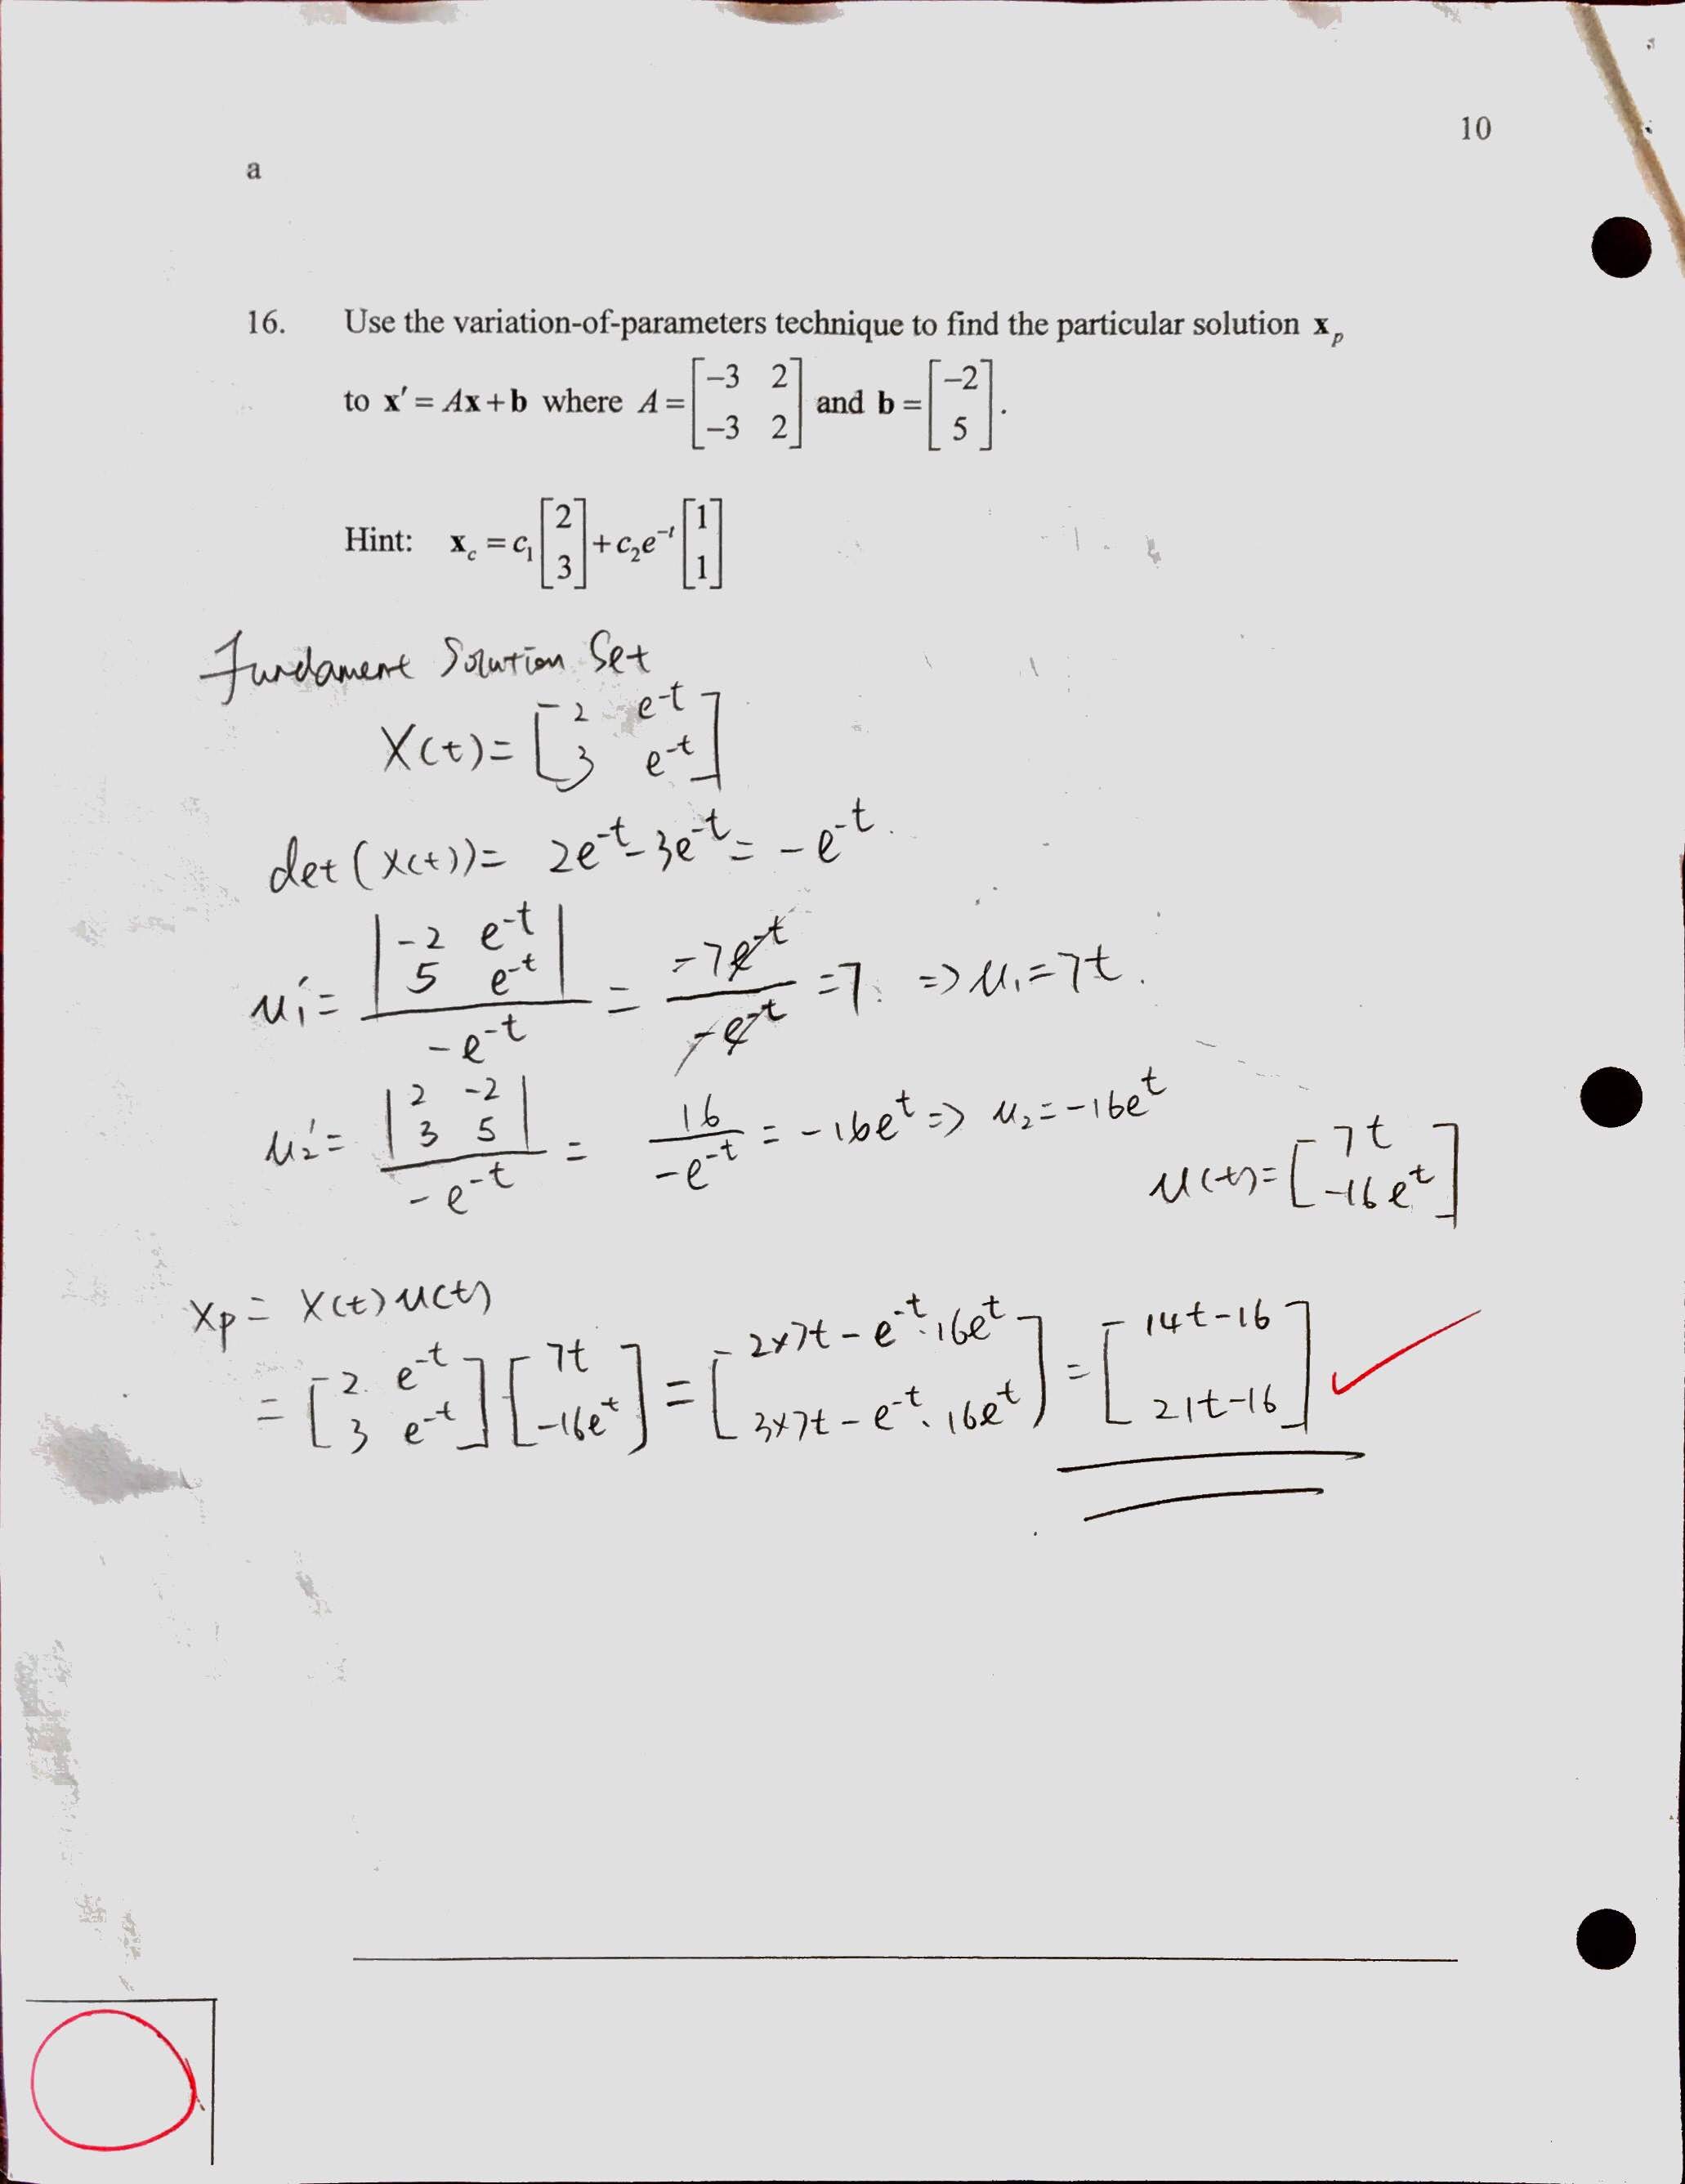 10
a
16. Use the variation-of-parameters technique to find the particular solution x_p
to x′ = Ax + b where A = [−3 2; −3 2] and b = [−2; 5].
Hint: x_c = c₁[2; 3] + c₂e^−t[1; 1]
Fundament Solution Set
X(t) = [2 e^-t; 3 e^-t]
det(X(t)) = 2e^-t - 3e^-t = -e^-t.
u₁' = |-2 e^-t; 5 e^-t| / -e^-t = -7e^-t / -e^-t = 7. => u₁ = 7t.
u₂' = |2 -2; 3 5| / -e^-t = 16 / -e^-t = -16e^t => u₂ = -16e^t
u(t) = [7t; -16e^t]
Xp = X(t)u(t)
= [2 e^-t; 3 e^-t][7t; -16e^t] = [2×7t - e^-t·16e^t; 3×7t - e^-t·16e^t] = [14t-16; 21t-16]